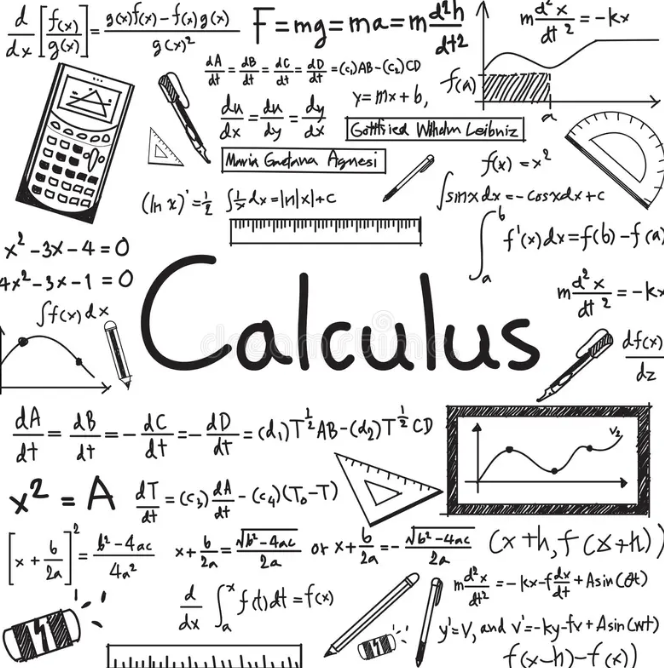 d/dx [f(x)/g(x)] = g(x)f(x) - f(x)g(x) / g(x)²
F = mg = ma = m d²h/dt²
m d²x/dt² = -kx
dA/dt = dB/dt = dC/dt = dD/dt = (c₁)AB-(c₂)CD
f(a)
a
du/dx = du/dy = dy/dx
y = mx + b,
Gottfried Wilhelm Leibniz
Maria Gaetana Agnesi
f(x) = x²
(ln x)' = 1/2
∫ 1/x dx = ln|x|+C
∫sinxdx = -cosxdx + c
∫ₐᵇ f'(x)dx = f(b) - f(a)
x² - 3x - 4 = 0
4x² - 3x - 1 = 0
∫f(x)dx
m d²x/dt² = -kx
Calculus
df(x)/dz
dA/dt = dB/dt = -dC/dt = -dD/dt = (d₁)T^½ AB-(d₂)T^½ CD
V₂
x² = A
dT/dt = (c₃) dA/dt - (c₄)(T₀-T)
[x + b/2a]² = b²-4ac / 4a²
x + b/2a = √b²-4ac / 2a or x + b/2a = - √b²-4ac / 2a
(x+h, f(x+h))
m d²x/dt² = -kx-f dx/dt + Asin(θt)
d/dx ∫ₐˣ f(t)dt = f(x)
y'=V, and v'=-ky-fv + Asin(wt)
f(x-h)-f(x))